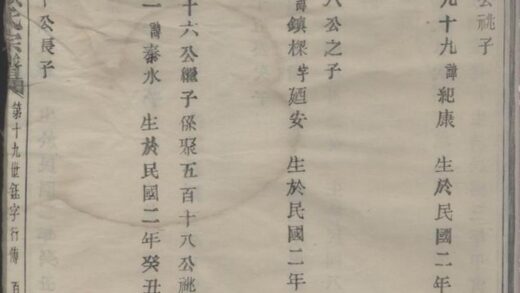 公祧子
九十九 諱紀康 生於民國二年
八公之子
諱鎮樑 字廼安 生於民國二年
十六公繼子係聚五百十八公祧
一 諱泰水 生於民國二年癸丑
公長子
氏宗譜 第十九世鈺字行傳